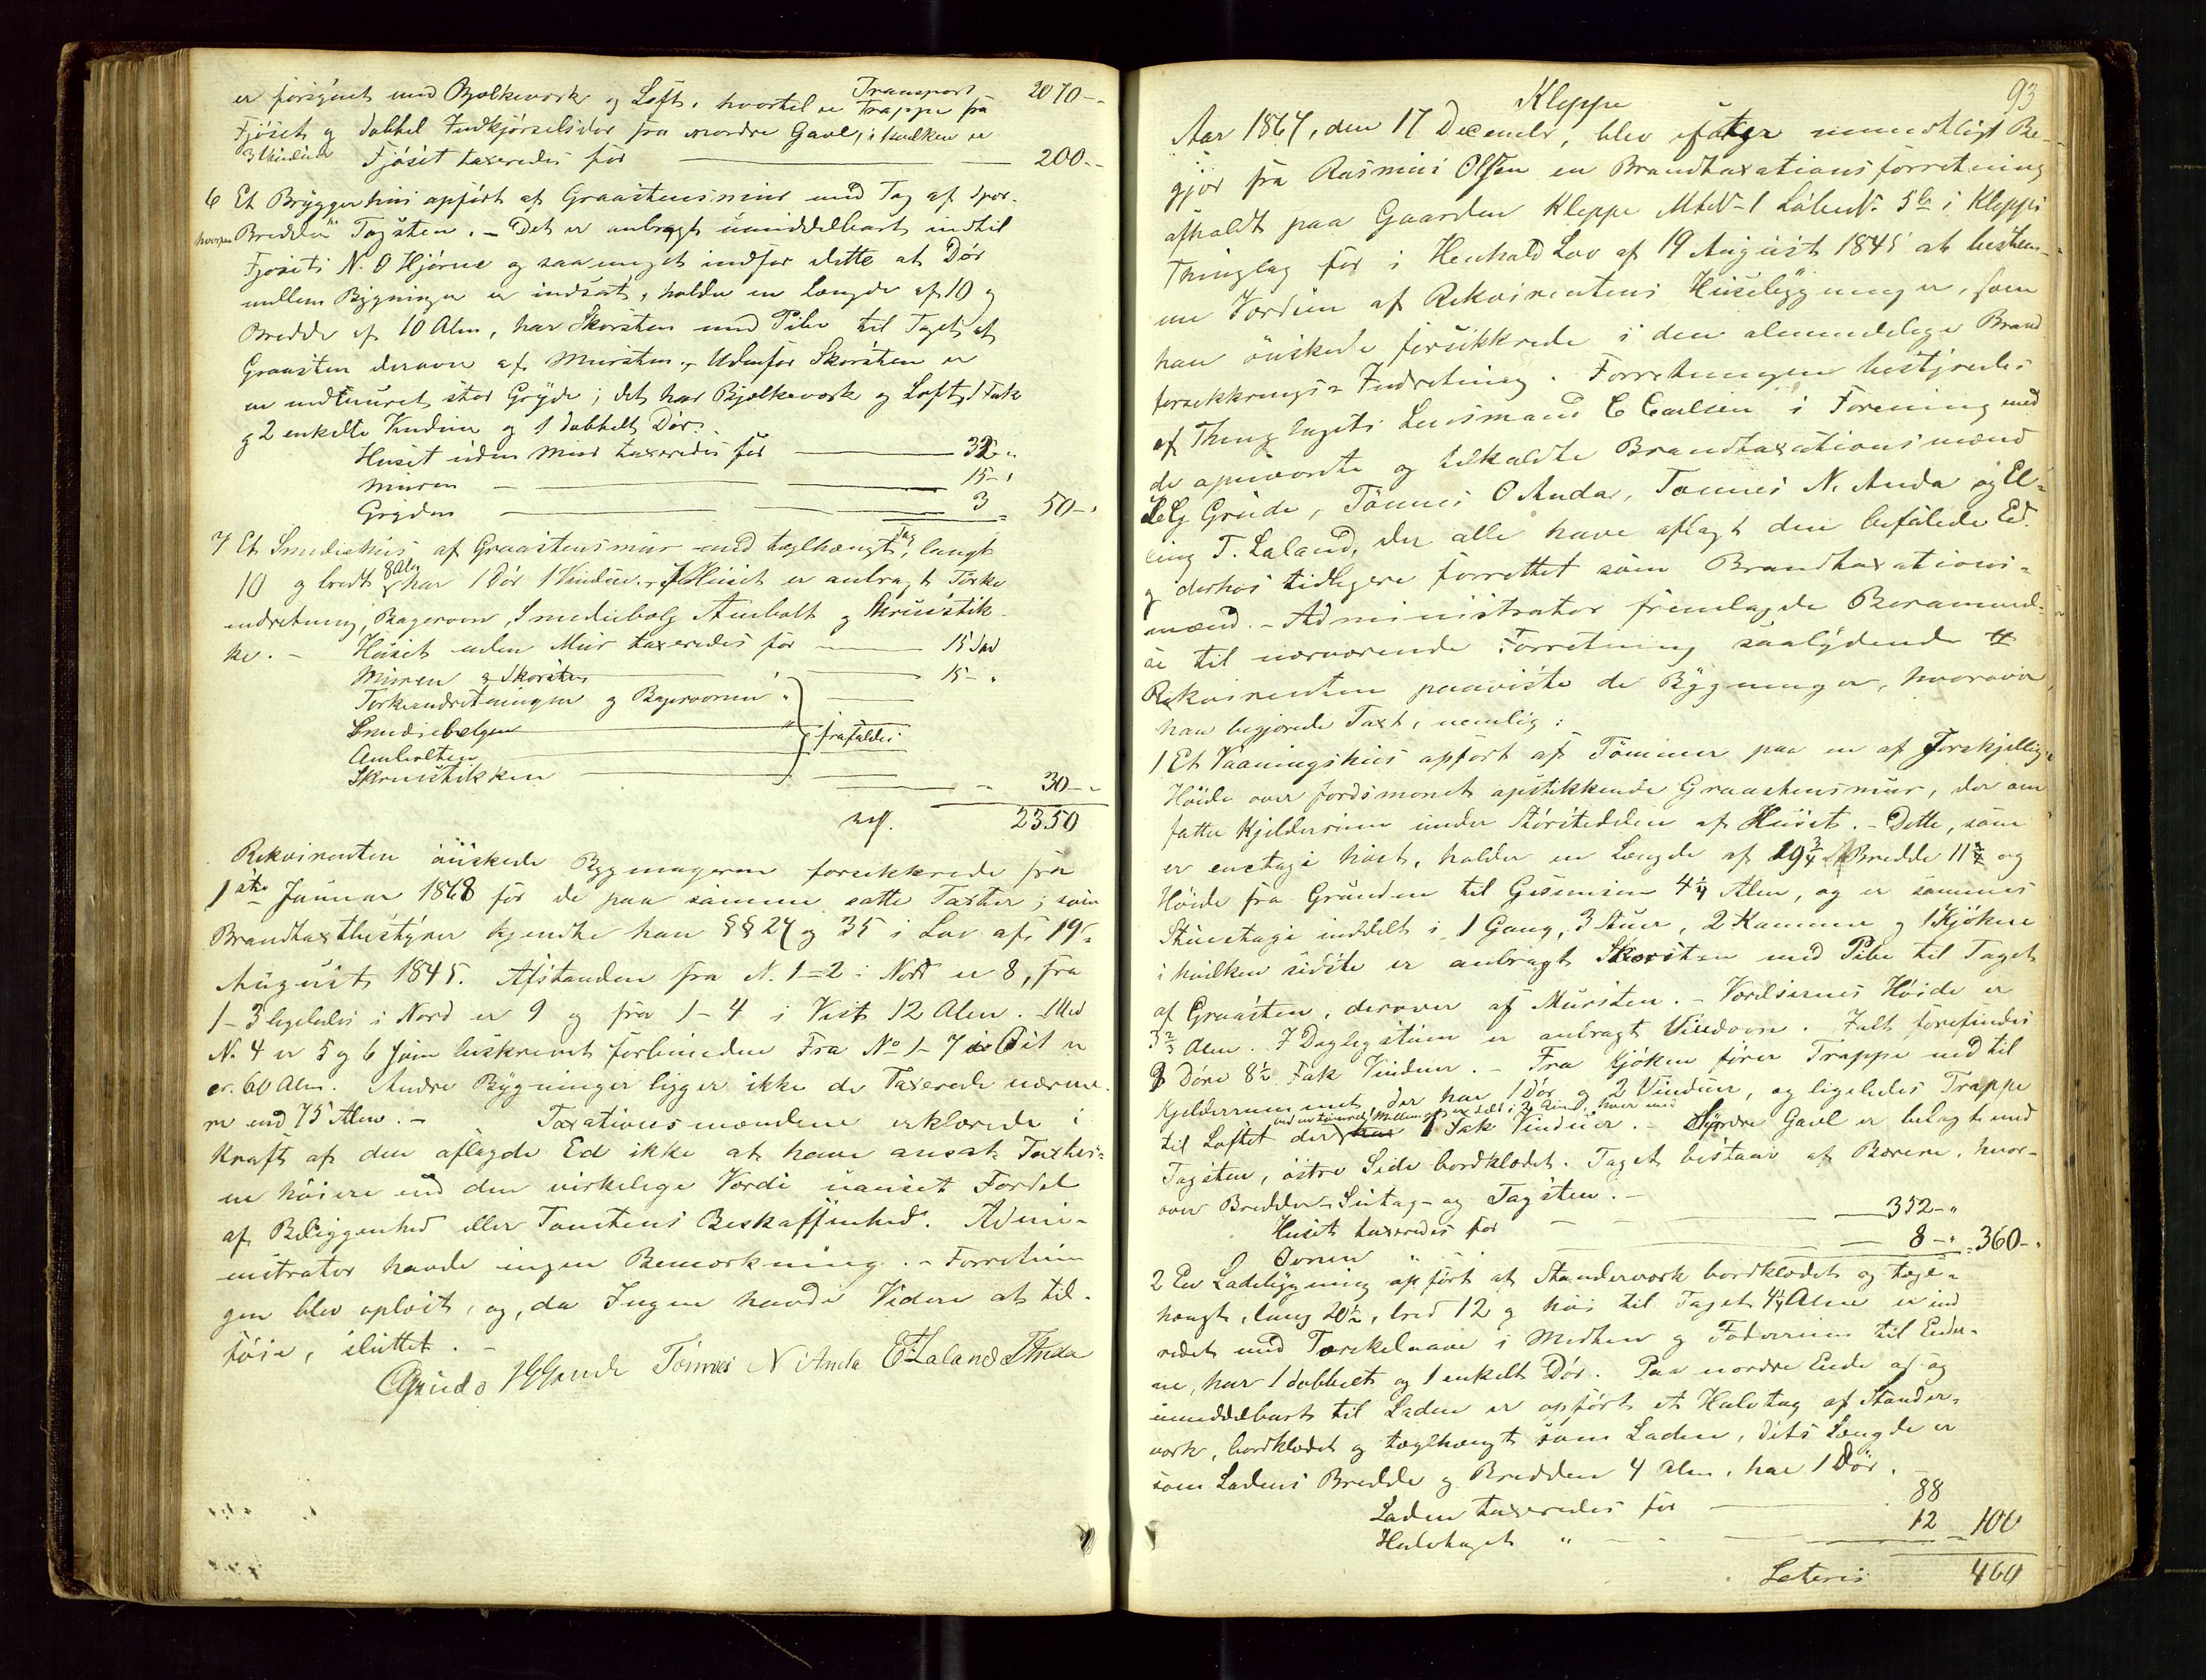 Transport 2070 --
er forsynet med Bjælkeværk og Loft, hvortil er Trappe fra
Fjöset og dobbel Indkjørselsdør fra nordre Gavl, i hvilken er
3 Vinduer Fjöset taxeredes for 200 --
6 Et Bryggerhuus opført af Graasteensmuur med Tag af Spær
hvorpaa Bredder Tagsteen. - Det er anbragt umiddelbart indtil
Fjösets N. O Hjørne og saameget indfor dette at Dør
mellem Bygningen er indsat, holder en Længde af 10 og
Bredde af 10 Alen, har Skorsteen med Pibe til Taget af
Graasteen derover af Muursteen, Udenfor Skorsteen er
en indmuret stor Gryde; det har Bjælkeværk og Loft, 1 Fak
og 2 enkelte Vinduer og 1 dobbelt Dør.
Huset uden Muur taxeredes for 32 "
Muren 15 - "
Gryden 3 = 50 - "
7 Et Smediehuus af Graasteensmuur med teglhængt Tag, langt
10 og bredt 8 Alen har 1 Dør 1 Vindue. I Huset er anbragt Törke
indretning, Bagerovn, Smediebælg Ambolt og Skruestik
ke. - Huset uden Muur taxeredes for 15 Spd
Muren og Skorsten 15 - "
Törkeindretningen og Bagerovnen "
Smediebælgen " frafaldes
Ambolten
Skruestikken
30 - "
2350
Rekvirenten önskede Bygningerne forsikkrede fra
1ste Januar 1868 for de paa samme satte Taxter; som
Brandtaxtbestyrer kjendte han §§ 27 og 35 i Lov af 19
August 1845. Afstanden fra N. 1-2 i Nord er 8, fra
1-3 ligeledes i Nord er 9 og fra 1-4 i Vest 12 Alen. Med
N. 4 er 5 og 6 som beskrevet forbundne Fra No 1-7 i Öst er
ca. 60 Alen. Andre Bygninger ligger ikke de Taxerede nærme
re end 75 Alen. - Taxationsmændene erklærede i
Kraft af den aflagde Ed ikke at have ansat Taxter-
ne höiere end den virkelige Værdi uanset Fordel
af Beliggenhed eller Tomtens Beskaffenhed. Admi-
nistrator havde ingen Bemærkning. - Forretnin
gen blev oplæst, og, da Ingen havde Videre at til-
föie, sluttet. -
Tönnes N Anda E T Laland T Anda
93
Kleppe
Aar 1867, den 17 December, blev efter mundtligt Be-
gjær fra Rasmus Olsen en Brandtaxationsforretning
afholdt paa Gaarden Kleppe Mtr. N. 1 Löbe N. 5 b i Klepps
Thinglag for i Henhold Lov af 19 August 1845 at bestem-
me Værdien af Rekvirentens Huusbygninger, som
han önskede forsikkrede i den almindelige Brand
forsikkrings-Indretning. Forretningen bestyredes
af Thinglagets Lensmand C Carlsen i Forening med
de opnævnte og tilkaldte Brandtaxationsmænd
L G Grude, Tönnes O Anda, Tönnes N. Anda og El-
ling T. Laland, der alle have aflagt den befalede Ed
og derhos tidligere forrettet som Brandtaxations-
mænd. - Administrator fremlagde Berammel-
se til nærværende Forretning saalydende #
Rekvirenten paaviste de Bygninger, hvorover
han begjærede Taxt, nemlig:
1 Et Vaaningshuus opført af Tömmer paa en af forskjellig
Höide over Jordsmonet opstikkende Graasteensmuur, der om
fatter Kjelderrum under Störstedelen af Huset. - Dette, som
er en etage höit, holder en Længde af 19 3/4 Bredde 11 3/4 og
Höide fra Grunden til Gesimsen 4 1/4 Alen, og er sammes
Stueetage inddelt i 1 Gang, 3 Stuer, 2 Kammere og 1 Kjökken
i hvilken sidste er anbragt Skorsten med Pibe til Taget
af Graasten, derover af Mursten. - Værelsernes Höide er
3 2/3 Alen. I Daglegstuen er anbragt Vindovn. I alt forefindes
9 Döre 8 1/2 Fak Vinduer. - Fra Kjökken förer Trappe ned til
Kjelderrummet, der har 1 Dör og 2 Vinduer, og ligeledes Trappe
til Loftet der ved en tömret Mellemvæg er delt i 2 Rum, hver med 1 Fak Vinduer. - Syndre Gavl er belagt med
Tagsten, östre Side bordklædet. Taget bestaar af Bærere, hvor-
over Bredder Lintag og Tagsten. -
Huset taxeredes for 352 - "
Ovnen " 8 - " = 360 - "
2 En Ladebygning opført af Standerværk bordklædet og tegl-
hængt, lang 20 1/2, bred 12 og höi til Taget 4 1/4 Alen er ind
redet med Tærskelaave i Midten og Foderrum til Ender-
ne, har 1 dobbelt og 1 enkelt Dör. Paa nordre Ende af og
umiddelbart til Laden er opført et Halvtag af Stander-
værk, bordklædet og teglhængt som Laden, dets Længde er
som Ladens Bredde og Bredden 4 Alen, har 1 Dör.
Laden taxeredes for 88
Halvtaget " 12 = 100
Lateris 460